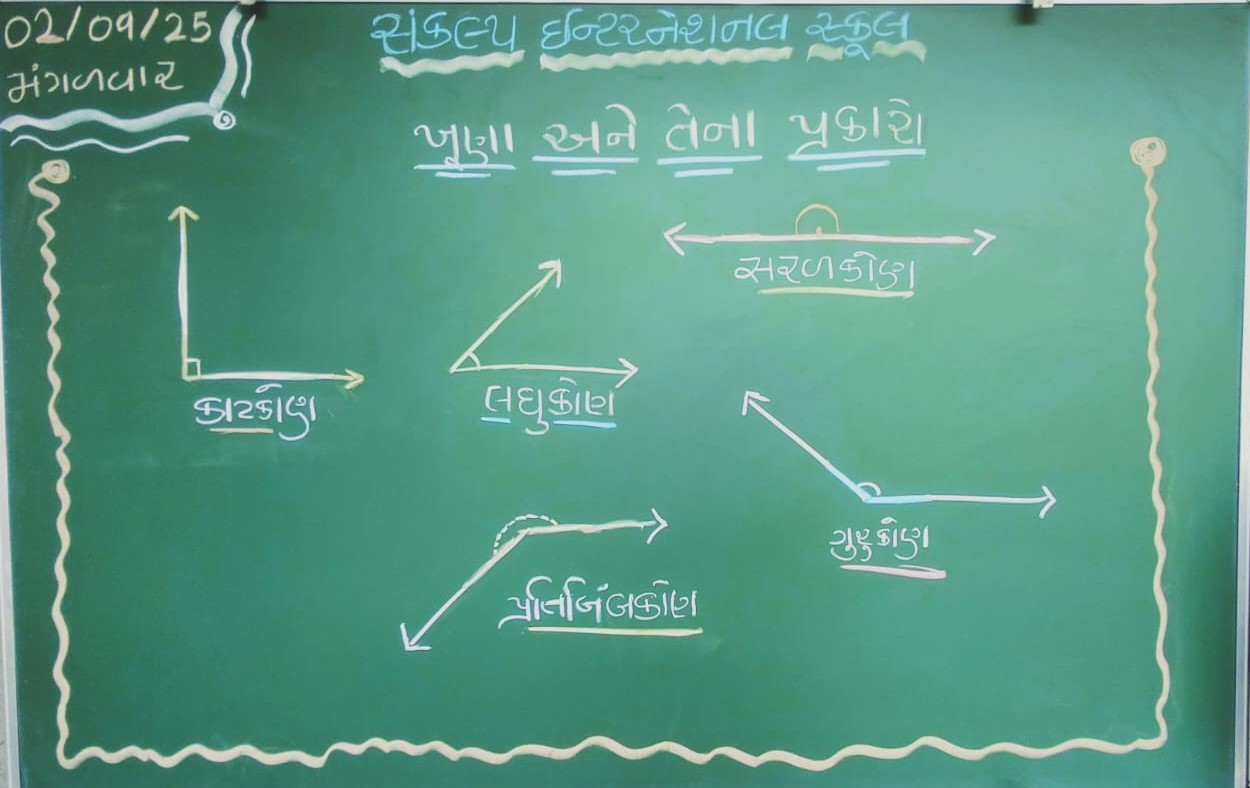 02/09/25
મંગળવાર
સંકલ્પ ઈન્ટરનેશનલ સ્કૂલ
ખૂણા અને તેના પ્રકારો
સરળકોણ
કાટકોણ
લઘુકોણ
ગુરુકોણ
પ્રતિબિંબકોણ